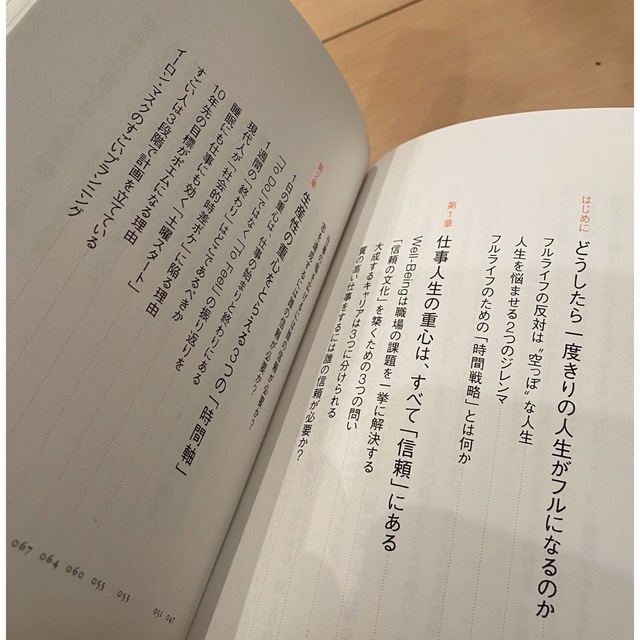 はじめに
どうしたら一度きりの人生がフルになるのか
フルライフの反対は“空っぽ”な人生
人生を悩ませる2つのジレンマ
フルライフのための「時間戦略」とは何か
第1章
仕事人生の重心は、すべて「信頼」にある
Well-Beingは職場の課題を一挙に解決する
「信頼の文化」を築くための3つの問い
大成するキャリアは3つに分けられる
質の高い仕事をするには誰の信頼が必要か?
には誰の信頼が必要か?
には誰の信頼が必要か?
第2章
生産性の重心をとらえる3つの「時間軸」
1日の重心は、仕事の始まりと終わりにある
「To Do」ではなく「To Feel」の振り返りを
1週間の「終わり」はどこであるべきか
現代人が「社会的時差ボケ」に陥る理由
睡眠にも仕事にも効く「土曜スタート」
10年先の目標がポエムになる理由
すごい人は3段階で計画を立てている
イーロン・マスクのすごいプランニング
047
051
053
055
060
064
067